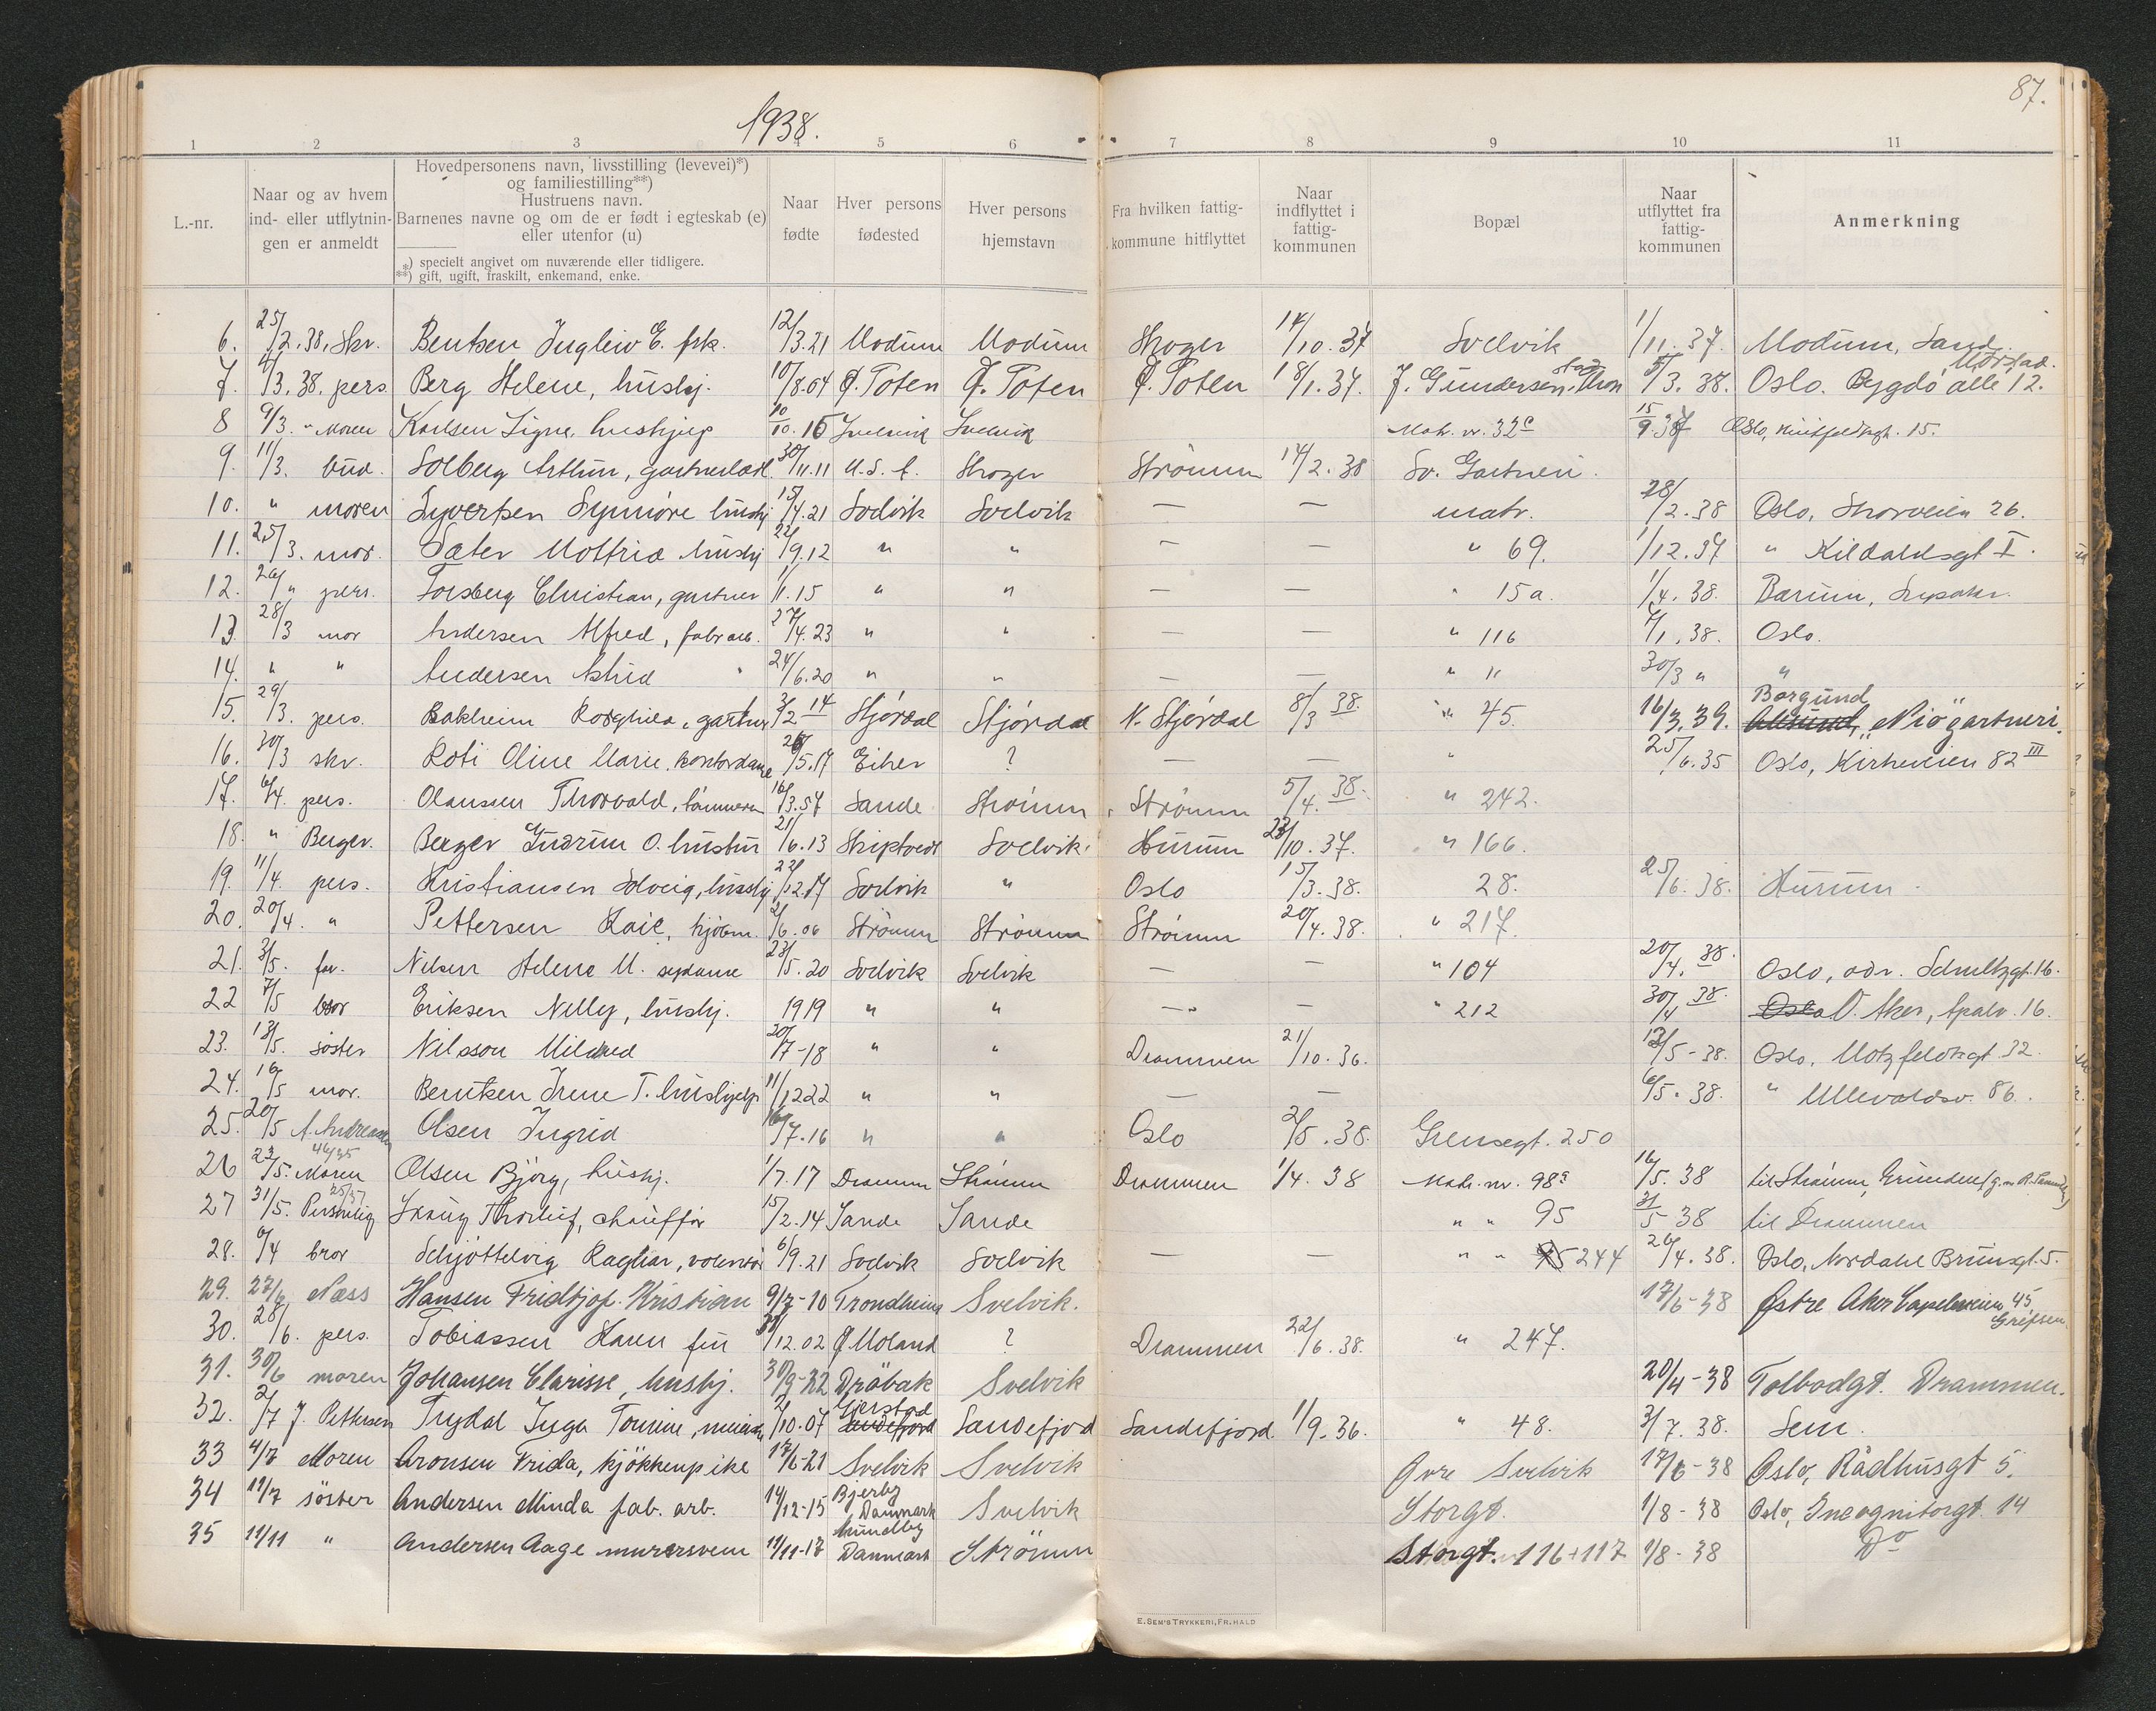 87.
1938.
1 2 3 4 5 6 7 8 9 10 11
L.-nr.
Naar og av hvem
ind- eller utflytnin-
gen er anmeldt
Hovedpersonens navn, livsstilling (levevei)*)
og familiestilling**)
Hustruens navn.
Barnenes navne og om de er født i egteskab (e)
eller utenfor (u)
*) specielt angivet om nuværende eller tidligere.
**) gift, ugift, fraskilt, enkemand, enke.
Naar
fødte
Hver persons
fødested
Hver persons
hjemstavn
Fra hvilken fattig-
kommune hitflyttet
Naar
indflyttet i
fattig-
kommunen
Bopæl
Naar
utflyttet fra
fattig-
kommunen
Anmerkning
6. 25/2.38. skr. Bentsen Ingleiv E. fsk. 12/3.21 Modum Modum Skoger 14/10.37 Svelvik 1/11.37. Modum, Sand
7. 4/3.38. pers Berg Helene, hushj. 10/8.04 Ø. Toten Ø. Toten Ø. Toten 18/1.37. J. Gundersen 5/3.38. Oslo. Bygdö alle 12.
8 9/3. " Moren Karlsen Signe, hushjelp 20/10.15 Svelvik Svelvik Matr. nr. 32c 15/9.37 Oslo, 15.
9. 11/3. bud. Solberg Arthur, 30/11.11 U.S.A. Skoger Strömm 14/2.38 Sv. Gartneri.
10. " moren Syvertsen Synnöve hushj 15/4.21 Svelvik Svelvik — — matr. 28/2.38 Oslo, 26.
11. 25/3. mor. Sæter Mottrid hushj 22/9.12 " " — — " 69. 1/12.37 " I.
12. 26/" pers. Forsberg Christian, gartner 1/1.15 " " — — " 15 a. 1/4.38. Bærum,
13. 28/3 mor Andersen Alfred, fabr arb. 27/4.23 " " — — " 116 7/1.38. Oslo.
14. " " Andersen Astrid " 24/6.20 " " — — " " 30/3 " "
15. 29/3. pers. Bakheim Borghild, gartner 3/2 14 Stjördal Stjördal N. Stjördal 8/3 38. " 45. 16/3.39. Borgund "Nió" gartneri.
16. 30/3 skr. Roti Oline Marie, kontordame 26/5.17 Eiker ? — — " 25/6.35 Oslo, Kirkeveien 82 III
17. 6/4. pers. Olaussen Thorvald, tömmerm 16/3.57 Sande Strömm Strömm 5/4.38. " 242.
18. " Berger. Berger Gudrun O. hustru 21/6.13 Skiptvedt Svelvik Hurum 23/10.37. " 166.
19. 11/4. pers. Kristiansen Solveig, hushj 22/12.17 Svelvik " Oslo 15/3.38. 28. 25/6.38. Hurum.
20. 20/4. " Pettersen Kaic, kjöbm. 2/6.06 Strömm Strömm Strömm 20/4.38. " 217.
21. 3/5. far. Nilsen Helene M. sydame 23/5.20 Svelvik Svelvik — — " 104 20/4.38. Oslo, adr. Schultzgt. 16.
22 7/5 bror Eriksen Nelly, hushj. 1919 " " — — " 212 30/4 38. Oslo V. Aker, Apalv. 16.
23. 13/5. söster Nilsson Mildred 20/7-18 " " Drammen 21/10.36. 12/5-38. Oslo, Motzfeldtsgt 32.
24. 16/5 mor. Berntsen Irene T. hushjelp 11/12 22 " " — — 6/5.38. " Ullevoldsv. 86.
25. 20/5 A. Andreassen Olsen Ingrid 16/7.16 " " Oslo 2/5.38. Grensegt. 250
26 23/5. Moren Olsen Björg, hushj. 1/7.17 Drammen Strömm Drammen 1/4.38 Matr. nr. 98a 16/5.38 til Strömm,
27 31/5. Personlig Skaug Thorleif, chauffør 15/2.14 Sande Sande " " 95 31/5 38 til Drammen
28. 6/4 bror Schjöttelvig Ragnar, 6/9.21 Svelvik Svelvik — — " " 244 26/4.38. Oslo, Nordahl Brunsgt. 5.
29. 27/6 Næss Hansen Fridtjof Kristian 9/7-10 Trondheim Svelvik. 17/6-38 Østre Aker Capelenveien 45 Grefsen
30. 28/6. pers. Tobiassen Karen fru 31/12.02 Ø Moland ? Drammen 22/6.38. " 247.
31. 30/6 moren Johansen Clarisse, hushj. 30/9-22 Dröbak Svelvik 20/4-38 Tolbodgt. Drammen.
32. 2/7 J. Pettersen Trydal Inga Tomine, 2/10.07 Gjerstad Sandefjord Sandefjord Sandefjord 1/9.36. " 48. 3/7.38. Sem.
33 4/7 Moren Aronsen Frida, kjökkenpike 17/6-21 Svelvik Svelvik Övre Svelvik 17/6-38 Oslo, Rådhusgt 5.
34 11/7 söster Andersen Minda fab. arb. 14/12-15 Bjerby Danmark Svelvik Storgt. 1/8-38 Oslo, Incognitorgt. 14
35 11/11 " Andersen Aage murersvem 11/11-17 Danmark Strömm Storgt. 116+117 1/8-38 Do
E. SEM'S TRYKKERI, FR.HALD